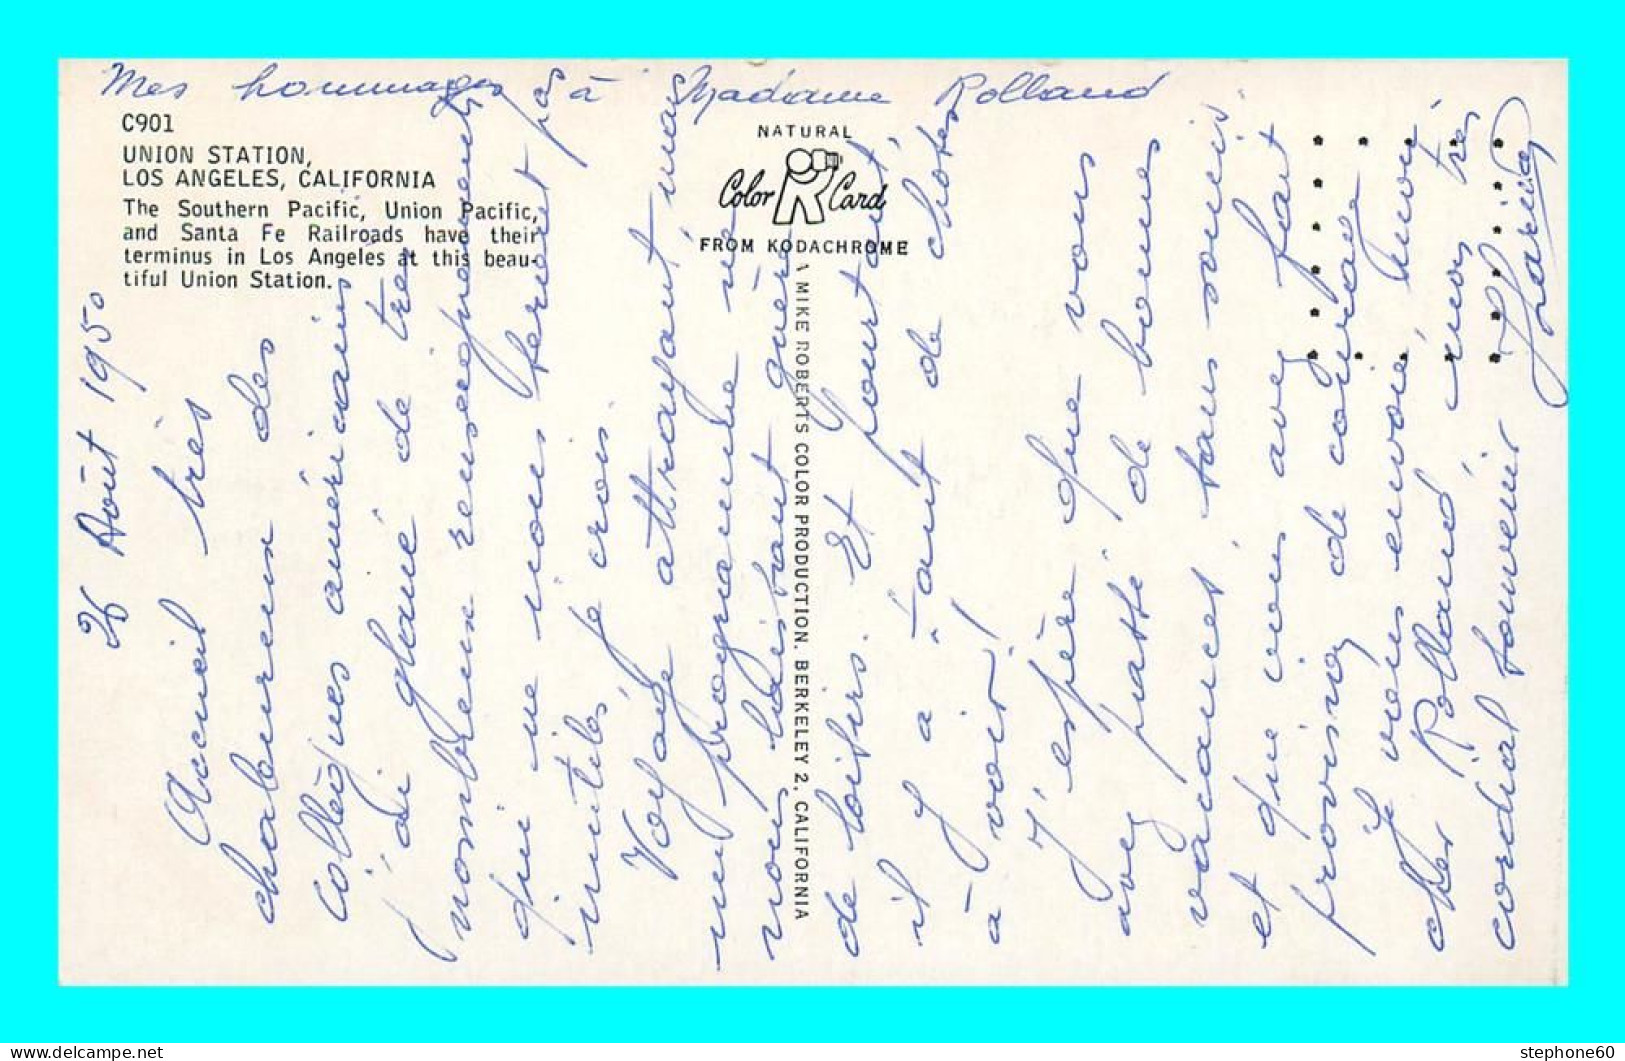 Mes hommages à Madame Rolland
C901
UNION STATION,
LOS ANGELES, CALIFORNIA
The Southern Pacific, Union Pacific,
and Santa Fe Railroads have their
terminus in Los Angeles at this beau-
tiful Union Station.
NATURAL
Color Card
FROM KODACHROME
A MIKE ROBERTS COLOR PRODUCTION. BERKELEY 2, CALIFORNIA
26 Août 1950
Accueil très
chaleureux des
collègues américains
j'ai glané de très
nombreux renseignements
qui ne nous seront pas
inutiles, je crois.
Voyage attrayant, mais
un programme ne
nous laissant guère
de loisirs. Et pourtant,
il y a tant de choses
à voir!
J'espère que vous
avez passé de bonnes
vacances, sans soucis
et que vous avez fait
provision de courage
Je vous envoie, mon
cher Rolland, mon très
cordial souvenir
stephone60